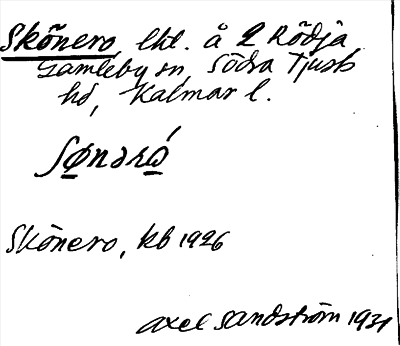 Skönero, lht. å 2 Rödja
Gamleby sn, Södra Tjusts
hd, Kalmar l.
Skönero, kb 1926
Axel Sandström 1931